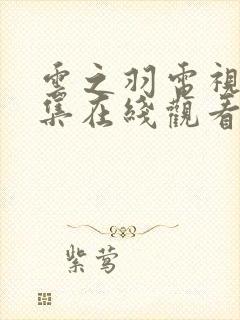 雲之羽電視
集在綫觀看
紫莺